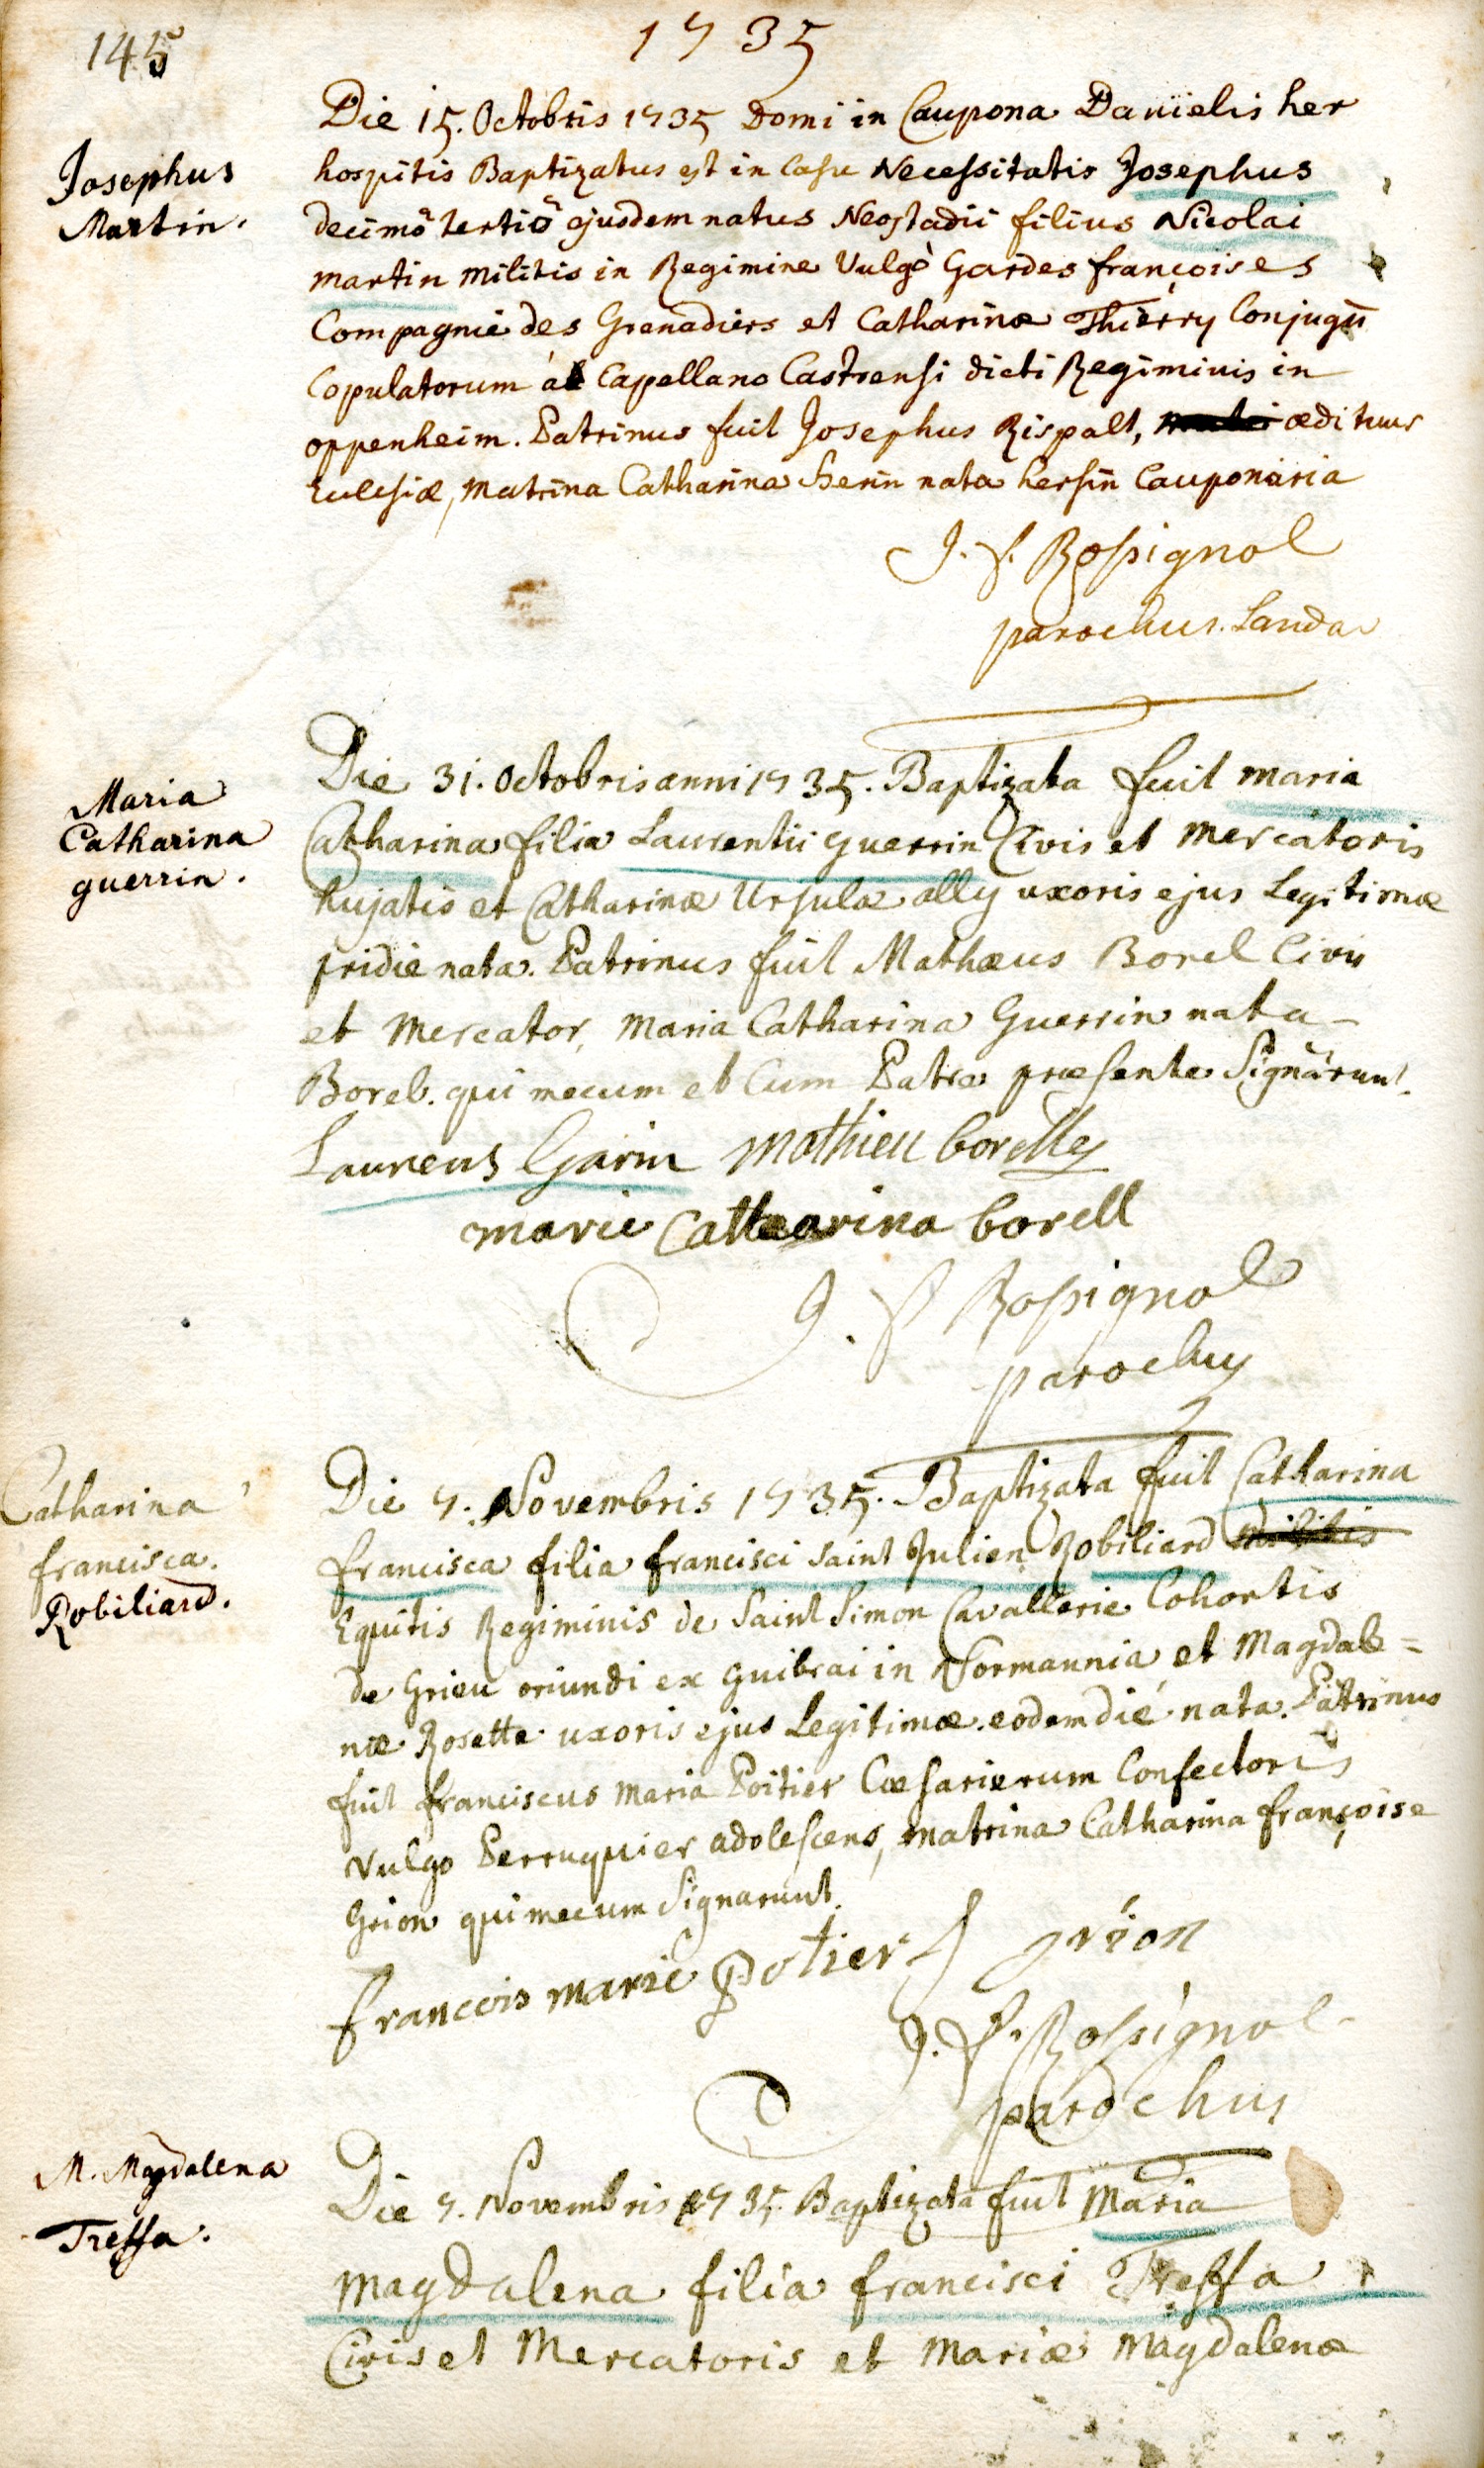 145
1735
Josephus
Martin.
Die 15. Octobris 1735 Domi in Caupona Danielis her
hospitis Baptizatus est in Casu Necessitatis Josephus
decimo tertio ejusdem natus Neostadii filius Nicolai
martin militis in Regimine Vulgò Gardes françoises
Compagnie des Grenadiers et Catharinæ Thierry Conjugū
Copulatorum ab Capellano Castrensi dicti Regiminis in
oppenheim. Patrinus fuit Josephus Rispalt, ædituus
Ecclesiæ, matrina Catharina herin nata hersin Cauponaria
J. f. Rossignol
parochus. Landa
Maria
Catharina
guerrin.
Die 31. Octobris anni 1735. Baptizata fuit maria
Catharina filia Laurentii guerrin Civis et mercatoris
hujatis et Catharinæ Ursulæ ally uxoris ejus Legitimæ
pridie nata. Patrinus fuit Mathæus Borel Civis
et mercator, maria Catharina Guerrin nata
Borel. qui mecum et Cum Patre præsente Signârunt.
Laurens Garin mathieu borelly
marie Catharina borell
J. f Rossignol
parochus
Catharina
francisca.
Robiliard.
Die 7. Novembris 1735. Baptizata fuit Catharina
francisca filia francisci saint Julien Robiliard militis
Equitis Regiminis de Saint Simon Cavallerie Cohortis
de Grieu oriundi ex guibrai in Normannia et Magdale=
næ Rosette uxoris ejus Legitimæ. eodem die nata. Patrinus
fuit franciscus maria Poitier Cæsarierum Confectoris
vulgo Perruquier adolescens, matrina Catharina françoise
Grion qui mecum Signarunt.
francois marie potier f grion
J. f. Rossignol
parochus
M. Magdalena
Treffa.
Die 7. Novembris 1735. Baptizata fuit maria
magdalena filia francisci Treffa
Civis et Mercatoris et mariæ magdalenæ